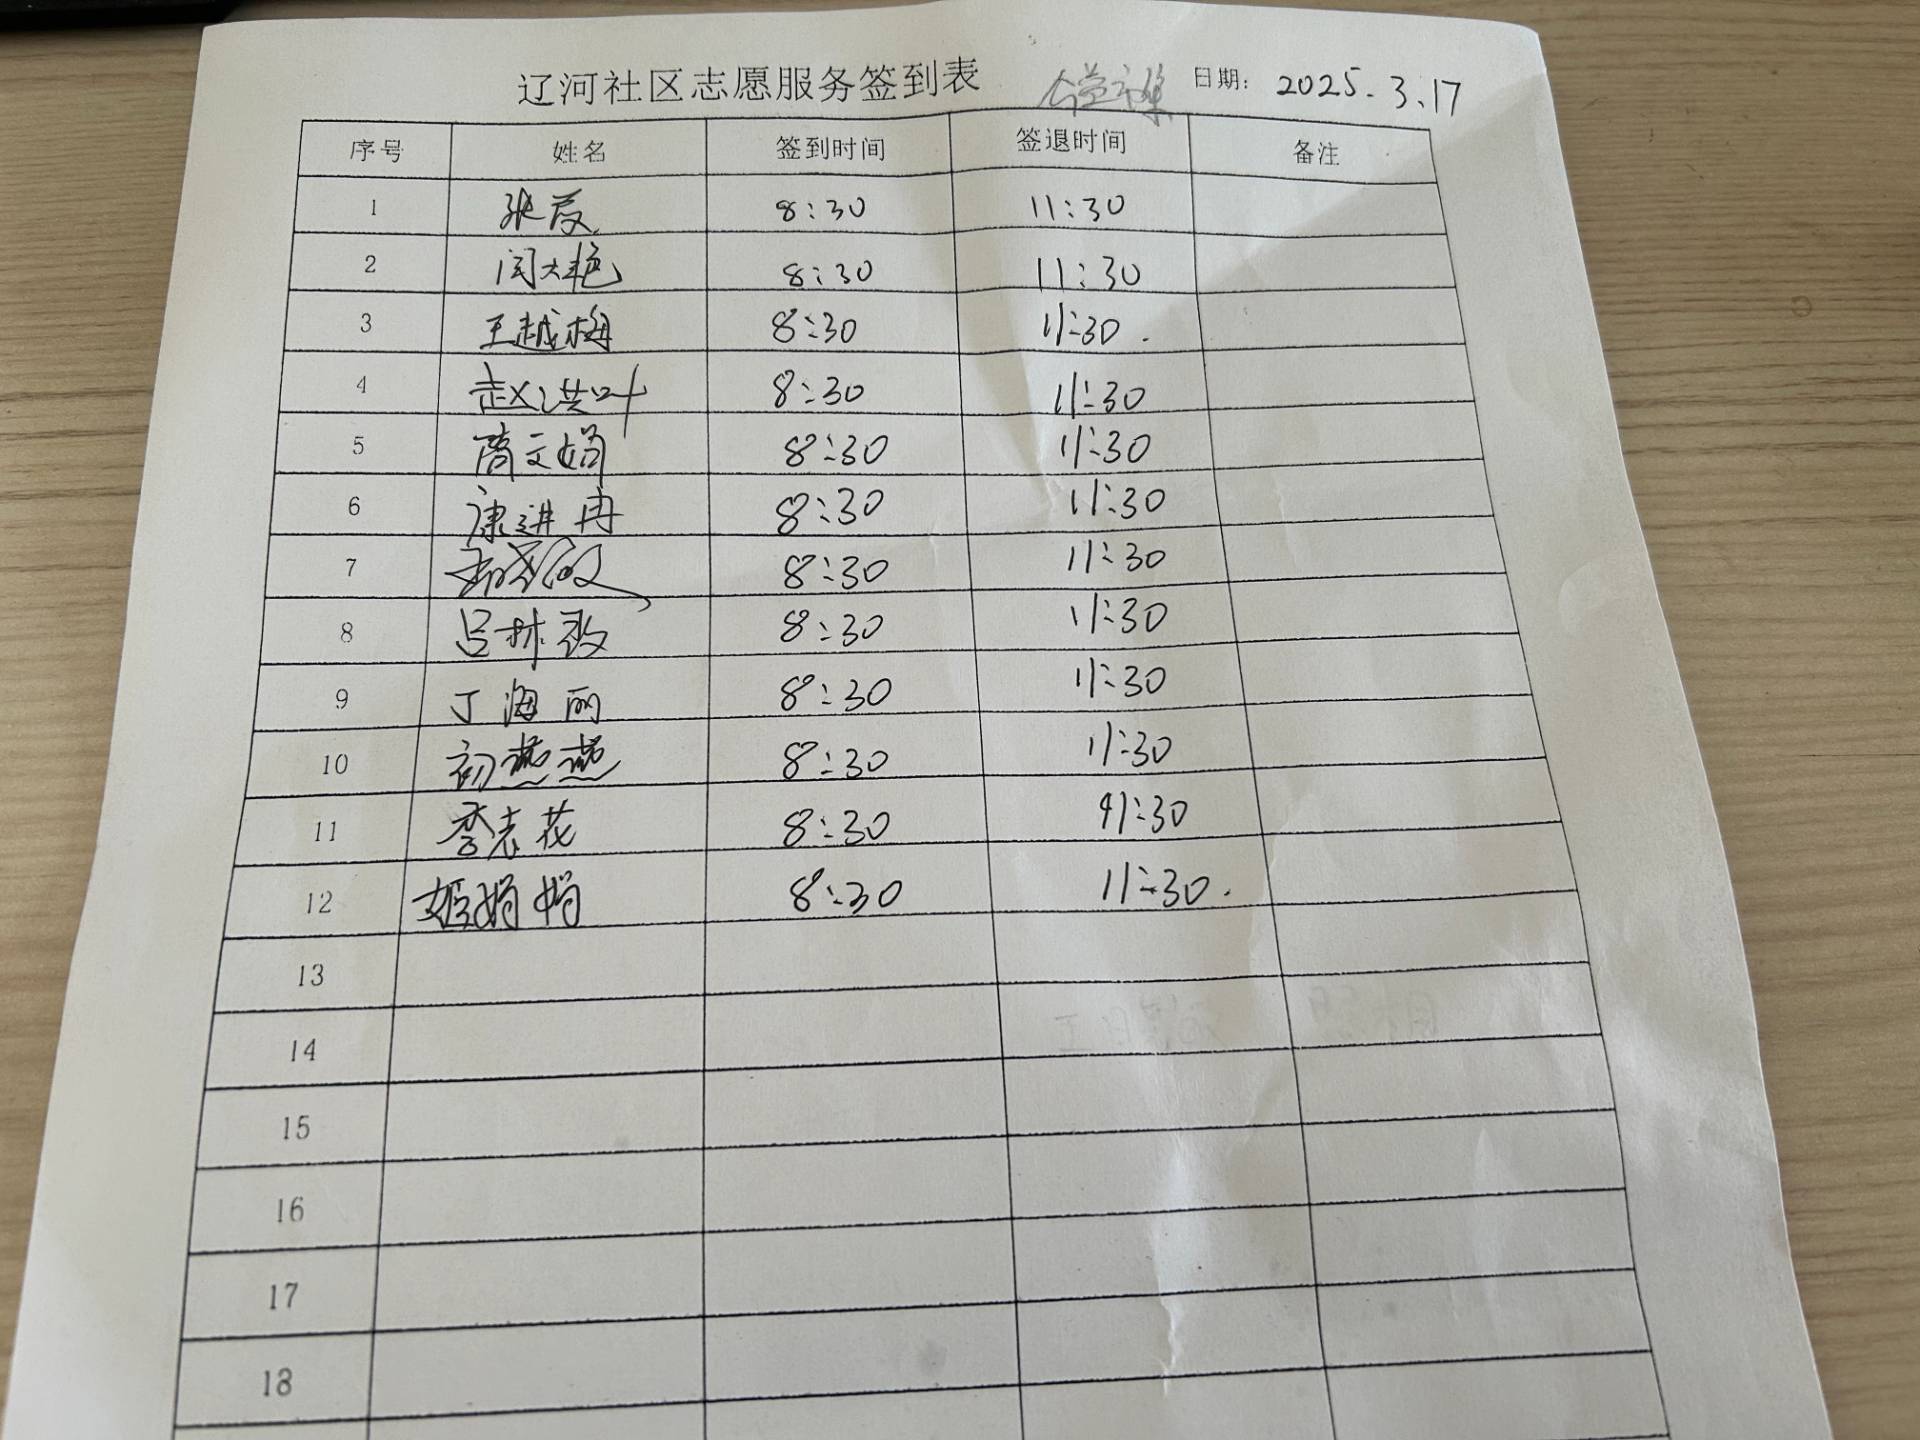 辽河社区志愿服务签到表 日期: 2025.3.17
序号 姓名 签到时间 签退时间 备注
1 张霞 8:30 11:30
2 闫大艳 8:30 11:30
3 王越梅 8:30 11:30.
4 赵洪叶 8:30 11:30
5 商文娟 8:30 11:30
6 康进冉 8:30 11:30
7 8:30 11:30
8 吕林 8:30 11:30
9 丁海丽 8:30 11:30
10 初燕燕 8:30 11:30
11 李志花 8:30 11:30
12 姬娟娟 8:30 11:30.
13
14
15
16
17
18